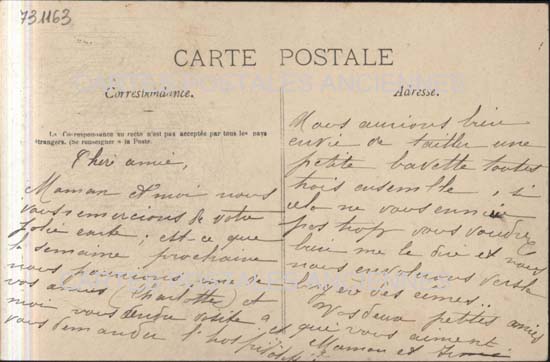 731163
CARTE POSTALE
CARTES POSTALES ANCIENNES
Correspondance.
La Correspondance au recto n'est pas acceptée par tous les pays
étrangers. (Se renseigner à la Poste.
Chère amie,
Maman et moi nous
vous remercions de votre
jolie carte; est-ce que
la semaine prochaine
nous pourrions une de
vos amies (Charlotte) et
moi vous rendre visite
vous demander l'hospitalité
Adresse.
Nous aurions bien
envie de tailler une
petite bavette toutes
trois ensemble, si
cela ne vous ennuie
pas trop vous voudrez
bien me le dire et nous
nous envolerons vers la
légère des
Vos deux petites amies
qui vous aiment
Maman et
CARTES POSTALES ANCIENNES